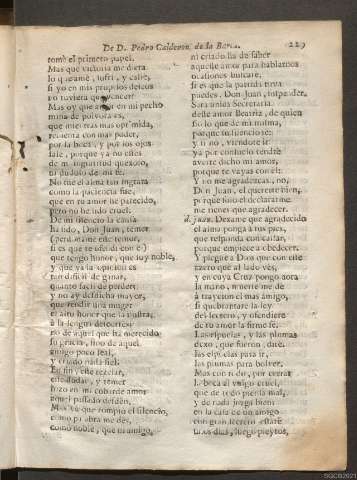 De D. Pedro Calderon de la Barca. 229
tomè el primero papel.
Mas que victoria me diera
lo que amè, sufrì, y callè,
si yo en mis proprios deseos
no tuviera que vencer?
Mas oy que amor en mi pecho
mina de polvora es,
que mientras mas oprimida,
rebienta con mas poder,
por la boca, y por los ojos
sale, porque ya no estès
de mi ingratitud quexoso,
ni dudoso de mi fe.
No fue el alma tan ingrata
como la paciencia fue,
que en tu amor he parecido,
pero no he sido cruel.
De mi silencio la causa
ha sido, Don Juan, temer
(perdoname este temor,
si es que te ofendi con èl)
que tengo honor, que soy noble,
y que ya la opinion es
tan dificil de ganar,
quanto facil de perder:
y no ay desdicha mayor,
que rendir una muger
el altivo honor que la ilustra,
à la lengua descortès
de aquel que ha merecido
su gracia, sino de aquel
amigo poco leal,
y criado nada fiel.
En fin, este rezelar,
este dudar, y temer
hizo en mi cobarde amor
aquel passado desdèn.
Mas ya que rompiò el silencio,
como palabra me des,
como noble, que ni amigo,
ni criado ha de saber
aqueste amor para hablarnos
ocasiones buscarè.
si es que la partida tuya
puedes, Don Juan, suspender.
Serà unica Secretaria
deste amor Beatriz, de quien
fio lo que de mi misma,
porque su silencio sè:
y si no, viendote ir
ya por consuelo tendrè
averte dicho mi amor,
porque te vayas con èl:
Y no me agradezcas, no,
Don Juan, el quererte bien,
porque solo el declararme
me tienes que agradecer.
d. Juan. Dexame que agradecido
el alma ponga à tus pies,
que responda con callar,
porque empiece à obedecer.
Y plegue à Dios que con este
azero que al lado ves,
y en cuya Cruz pongo aora
la mano, muerte me dè
à traycion el mas amigo,
si quebrantare la ley
del secreto, y ofendiere
de tu amor la firme fe.
Las espuelas, y las plumas
dexo, que fueron, dirè,
las espuelas para ir,
las plumas para bolver.
Mas con todo, por cerrar
la boca al vulgo cruel,
que de todo piensa mal,
y de nada juzga bien:
en la casa de un amigo
con gran secreto estarè
unos dias, luego pleytos,
SGCB2021